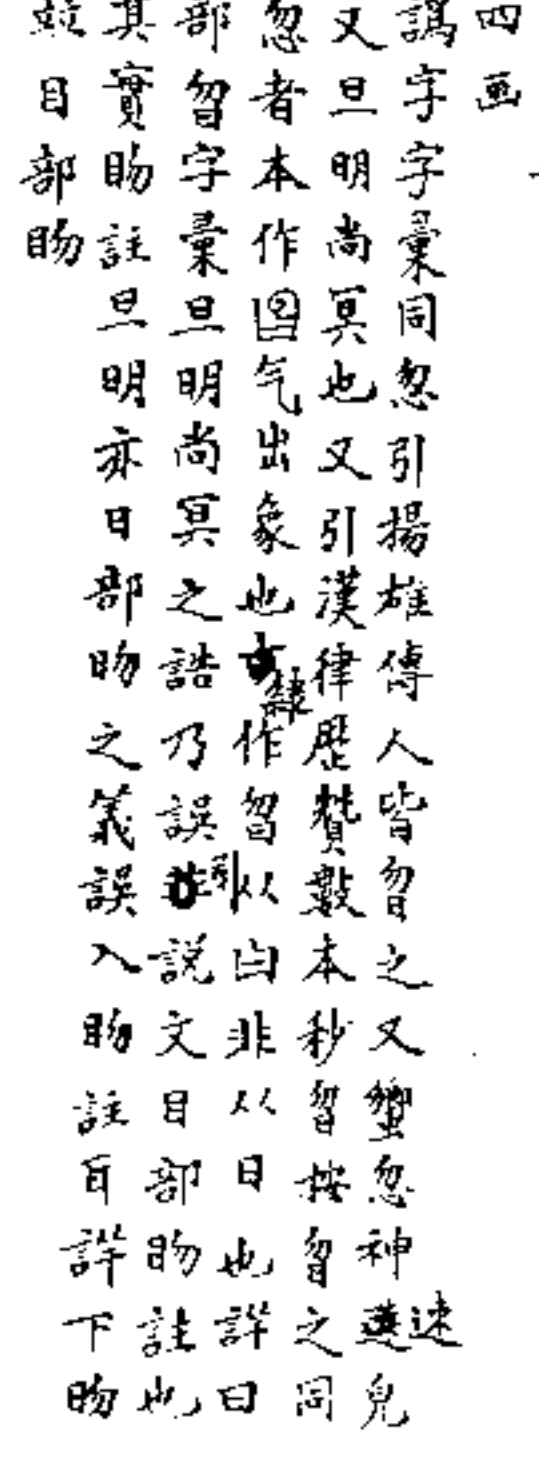 四画
譌字字彙同忽引揚雄傳人皆曶之又蠁忽神速皃
又旦明尚冥也又引漢律歷贊數本秒曶按曶之同
忽者本作气出象也隸作曶从白非从日也詳曰
部曶字彙旦明尚冥之誥乃誤引說文目部昒註也
其實昒註旦明亦日部昒之義誤入昒註耳詳下昒
兹目部昒